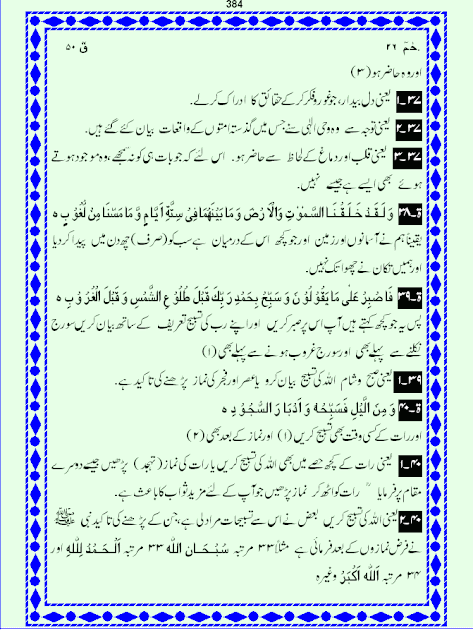 384
حٰمٓ ۲۶
قٓ ۵۰
اور وہ حاضر ہو (۳)
۳۷۔۱ یعنی دل بیدار، جو غور و فکر کر کے حقائق کا ادراک کر لے۔
۳۷۔۲ یعنی توجہ سے وہ وحی الٰہی سنے جس میں گذشتہ امتوں کے واقعات بیان کئے گئے ہیں۔
۳۷۔۳ یعنی قلب اور دماغ کے لحاظ سے حاضر ہو۔ اس لئے کہ جو بات ہی کو نہ سمجھے، وہ موجود ہوتے
ہوئے بھی ایسے ہے جیسے نہیں۔
ق۔۳۸ وَلَقَدْ خَلَقْنَا السَّمٰوٰتِ وَالْاَرْضَ وَمَا بَيْنَهُمَا فِىْ سِتَّةِ اَيَّامٍ وَّمَا مَسَّنَا مِنْ لُّغُوْبٍ ه
یقیناً ہم نے آسمانوں اور زمین اور جو کچھ اس کے درمیان ہے سب کو (صرف) چھ دن میں پیدا کر دیا
اور ہمیں تکان نے چھوا تک نہیں۔
ق۔۳۹ فَاصْبِرْ عَلٰى مَا يَقُوْلُوْنَ وَسَبِّحْ بِحَمْدِ رَبِّكَ قَبْلَ طُلُوْعِ الشَّمْسِ وَقَبْلَ الْغُرُوْبِ ه
پس یہ جو کچھ کہتے ہیں آپ اس پر صبر کریں اور اپنے رب کی تسبیح تعریف کے ساتھ بیان کریں سورج
نکلنے سے پہلے بھی اور سورج غروب ہونے سے پہلے بھی (۱)
۳۹۔۱ یعنی صبح و شام اللہ کی تسبیح بیان کرو یا عصر اور فجر کی نماز پڑھنے کی تاکید ہے۔
ق۔۴۰ وَمِنَ الَّيْلِ فَسَبِّحْهُ وَاَدْبَارَ السُّجُوْدِ ه
اور رات کے کسی وقت بھی تسبیح کریں (۱) اور نماز کے بعد بھی (۲)
۴۰۔۱ یعنی رات کے کچھ حصے میں بھی اللہ کی تسبیح کریں یا رات کی نماز (تہجد) پڑھیں جیسے دوسرے
مقام پر فرمایا رات کو اٹھ کر نماز پڑھیں جو آپ کے لئے مزید ثواب کا باعث ہے۔
۴۰۔۲ یعنی اللہ کی تسبیح کریں بعض نے اس سے تسبیحات مراد لی ہے، جن کے پڑھنے کی تاکید نبی ﷺ
نے فرض نمازوں کے بعد فرمائی ہے مثلاً ۳۳ مرتبہ سُبْحَانَ اللّٰه ۳۳ مرتبہ اَلْحَمْدُ لِلّٰهِ اور
۳۴ مرتبہ اَللّٰهُ اَكْبَرُ وغیرہ